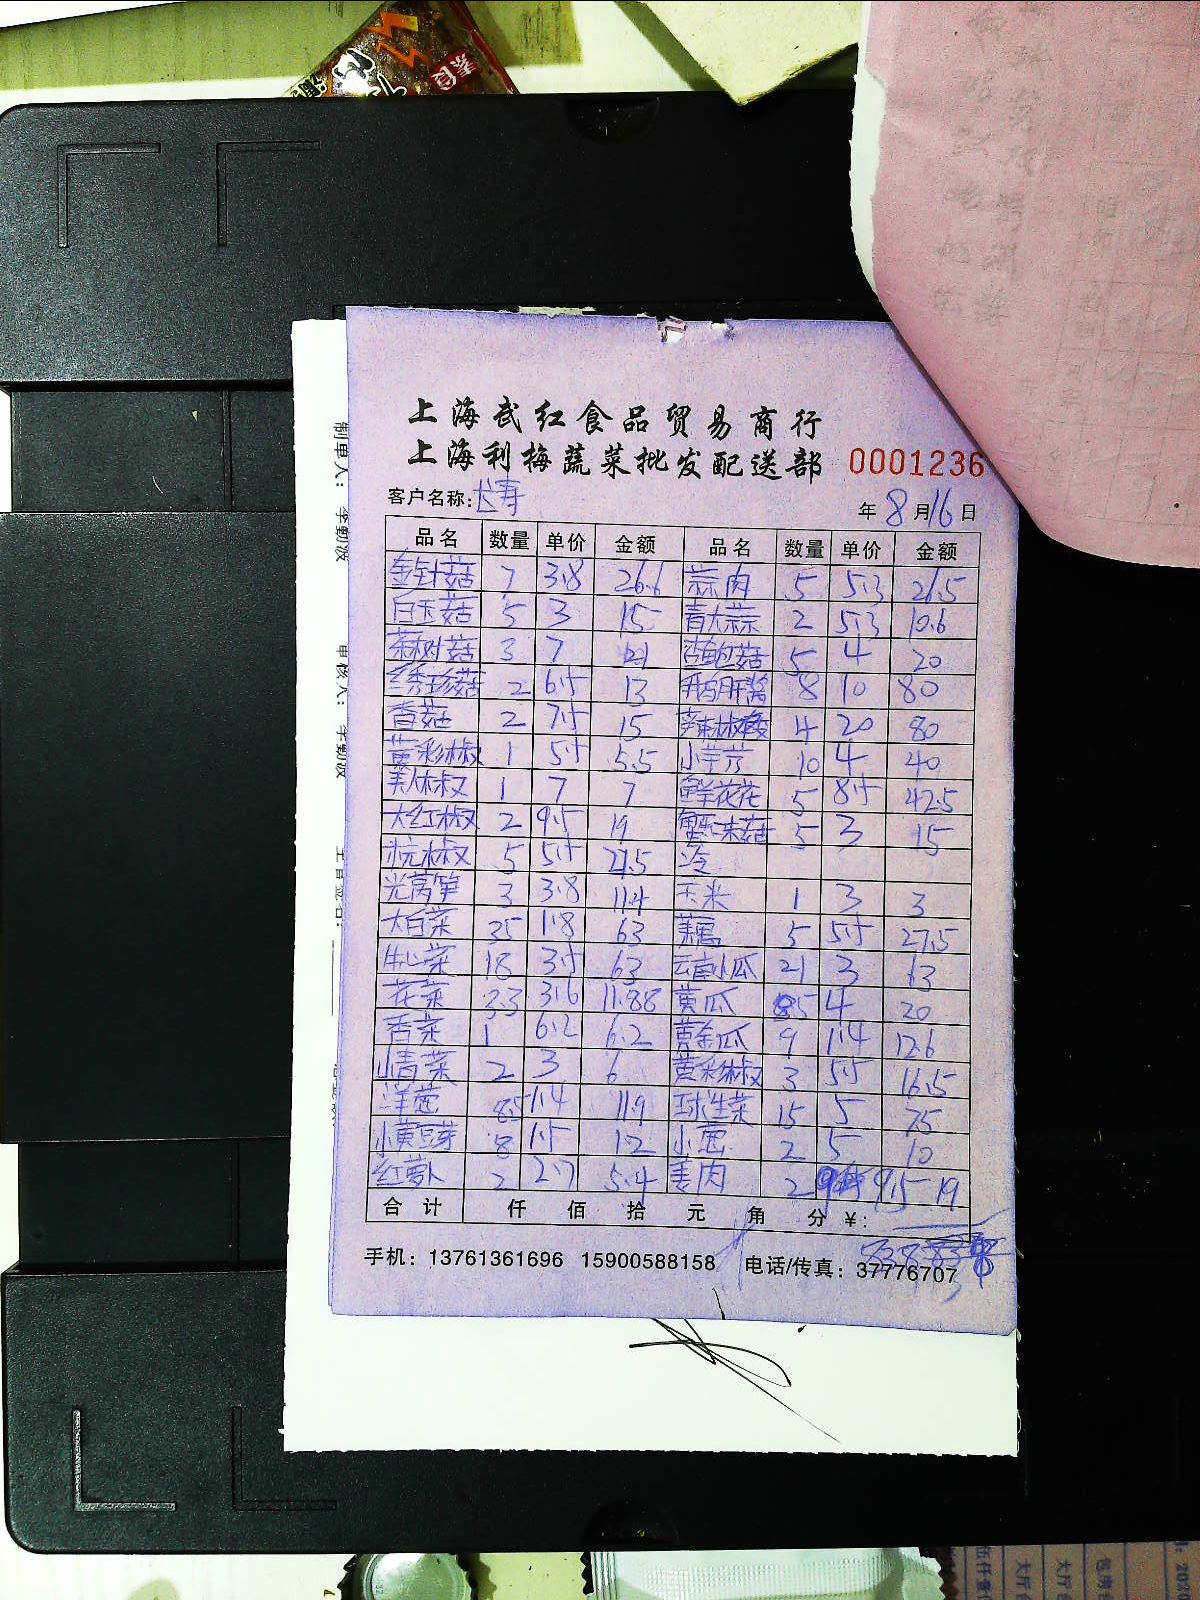 上海武红食品贸易商行
上海利梅蔬菜批发配送部 0001236
客户名称: 长寿 年 8 月 16 日
品名 数量 单价 金额 品名 数量 单价 金额
金针菇 7 3.8 26.6 蒜肉 5 5.3 26.5
白玉菇 5 3 15 青大蒜 2 5.3 10.6
茶树菇 3 7 21 杏鲍菇 5 4 20
绣珍菇 2 6.5 13 鹅肝酱 8 10 80
香菇 2 7.5 15 辣椒酸 4 20 80
黄彩椒 1 5.5 5.5 小芋艿 10 4 40
美人椒 1 7 7 鲜花花 5 8.5 42.5
大红椒 2 9.5 19 蟹味菇 5 3 15
杭椒 5 5.5 27.5 冷
光莴笋 3 3.8 11.4 玉米 1 3 3
大白菜 35 1.8 63 藕 5 5.5 27.5
牛心菜 18 3.5 63 云南小瓜 21 3 63
花菜 3.3 3.6 11.88 黄瓜 5 4 20
香菜 1 6.2 6.2 黄金瓜 9 1.4 12.6
小青菜 2 3 6 黄彩椒 3 5.5 16.5
洋葱 8.5 1.4 11.9 球生菜 15 5 75
小黄豆芽 8 1.5 12 小葱 2 5 10
红萝卜 2 2.7 5.4 姜肉 2 9.5 19
合计 仟 佰 拾 元 角 分 ¥:
手机: 13761361696 15900588158 电话/传真: 37776707
制单人: 李勤放
审核人: 李勤放
素食